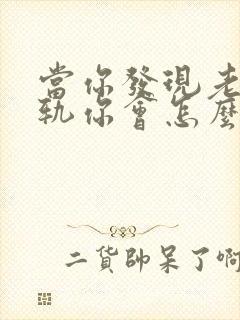 當你發現老
軌你會怎麼
二貨帥呆了啊